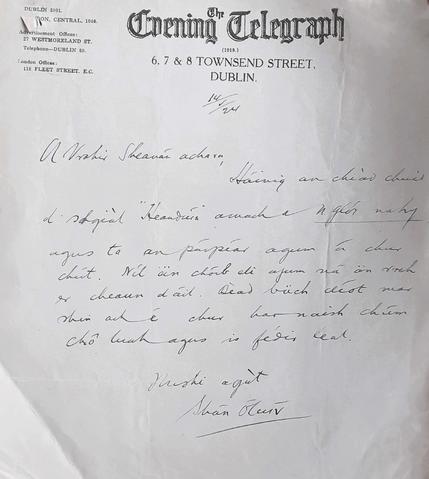 DUBLIN 5001.
LONDON, CENTRAL, 1046.
Advertisement Offices:
27 WESTMORELAND ST.
Telephone—DUBLIN 50.
London Offices:
118 FLEET STREET, E.C.
The
Evening Telegraph
(1919.)
6, 7 & 8 TOWNSEND STREET,
DUBLIN.
A Vrahir Sheaváin achara,
Háinig an chiád chuid
d'shgiàl "Heandúin" amach a
agus ta an pápéar agum á chur
chút. Níl áin chóib eli agum ná án
er cheaun dáil. Bead búch díot mar
shin ach é chur har naish chúm
chô luah agus is fédir leat.
agùt